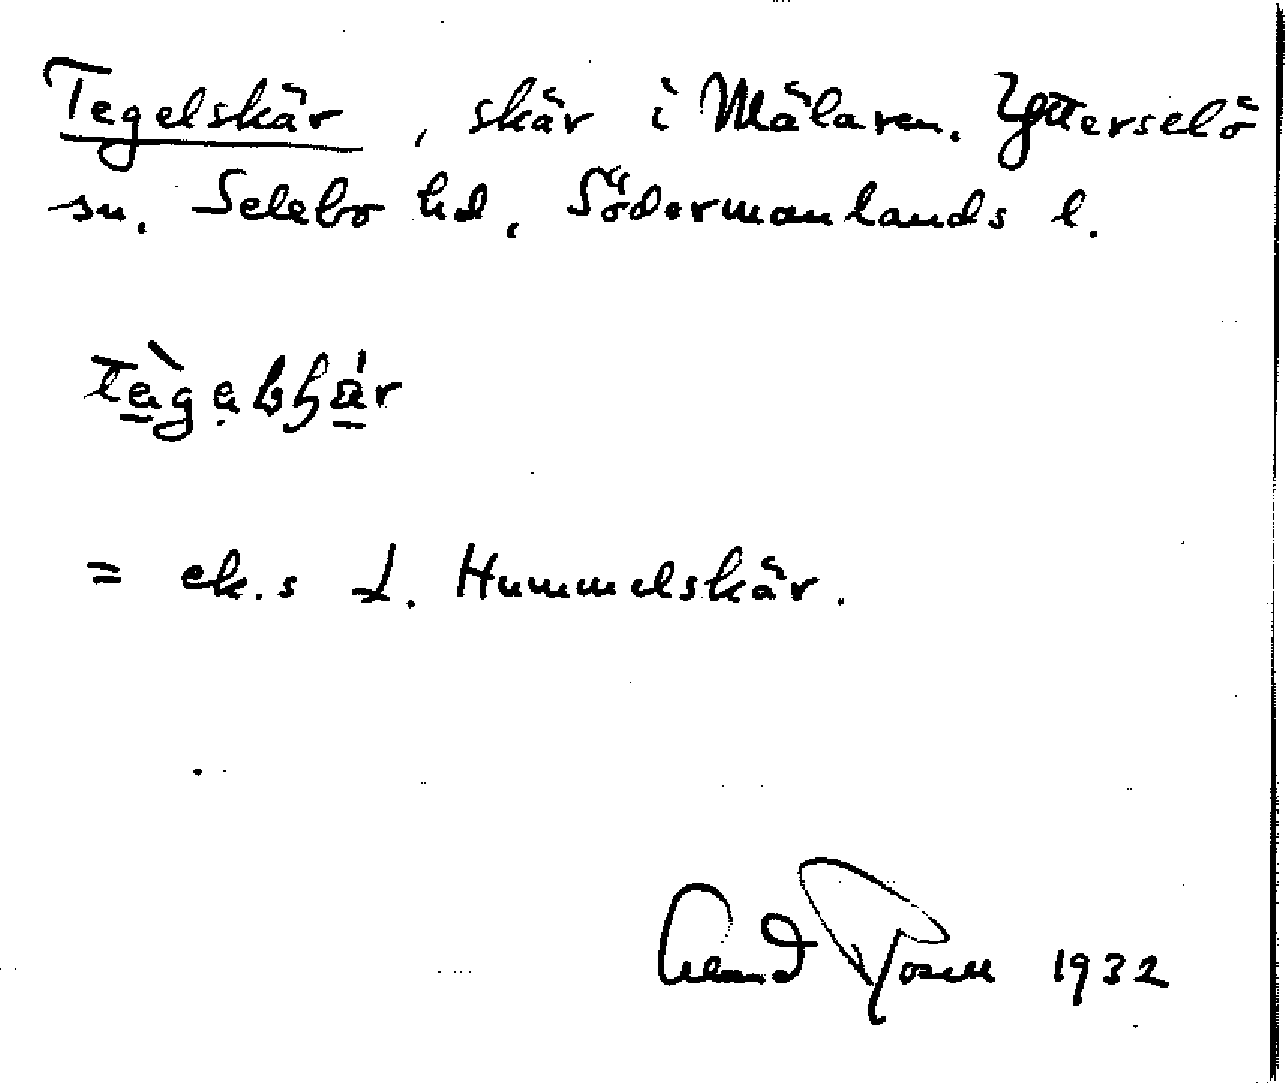 Tegelskär, skär i Mälaren. Ytterselö
sn. Selebo hd, Södermanlands l.
= ek.s L. Hummelskär.
Erland Rosell 1932